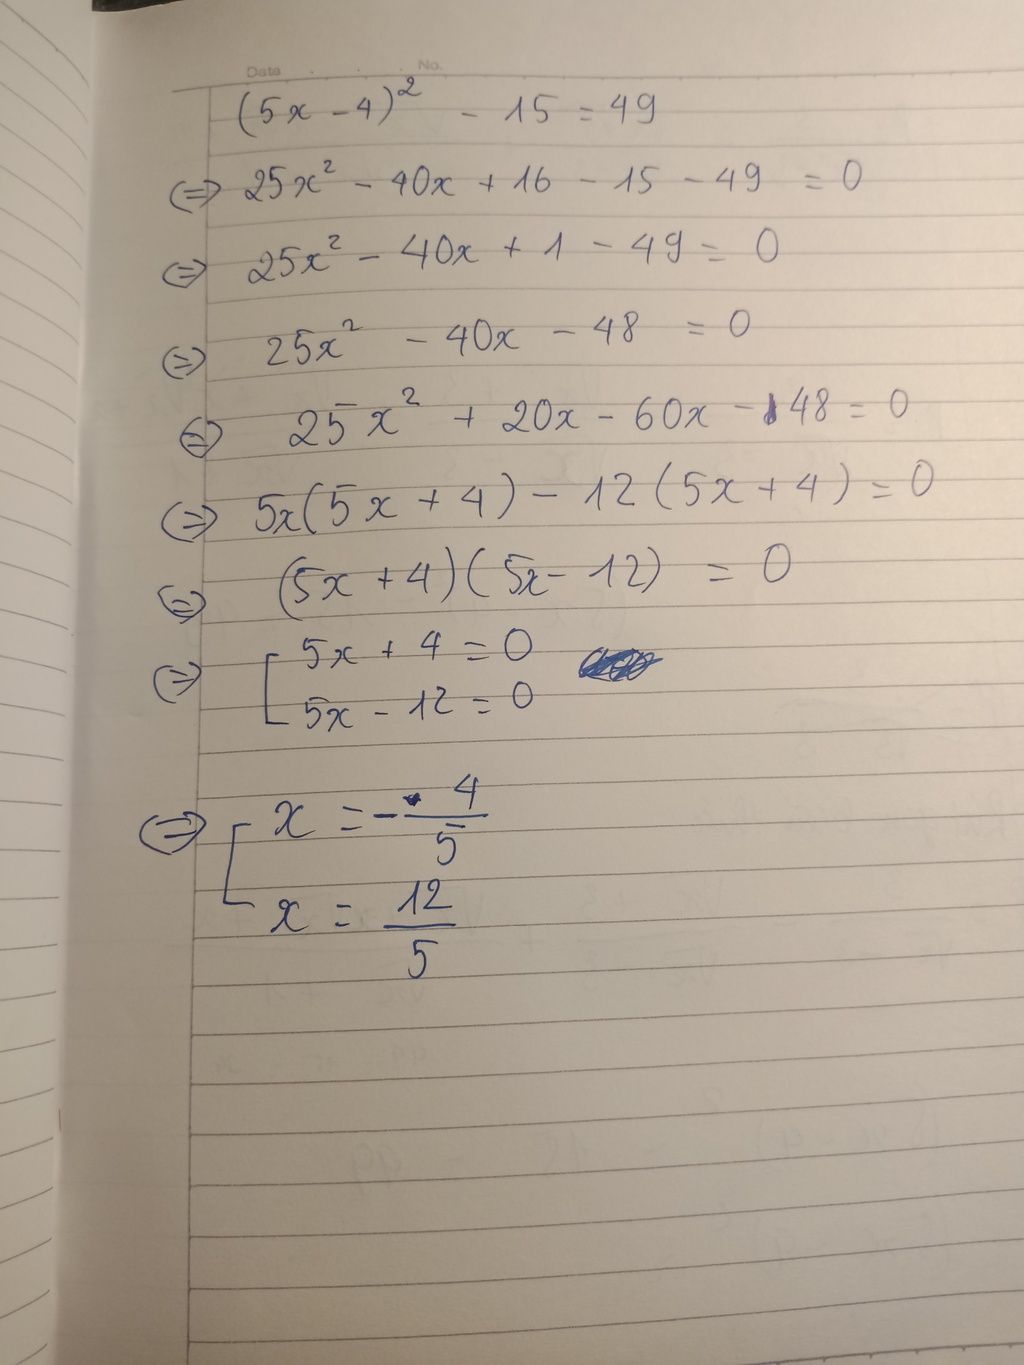 Date No.
(5x - 4)² - 15 = 49
⇔ 25x² - 40x + 16 - 15 - 49 = 0
⇔ 25x² - 40x + 1 - 49 = 0
⇔ 25x² - 40x - 48 = 0
⇔ 25x² + 20x - 60x - 48 = 0
⇔ 5x(5x + 4) - 12(5x + 4) = 0
⇔ (5x + 4)(5x - 12) = 0
⇔ [ 5x + 4 = 0
5x - 12 = 0
⇔ [ x = - 4/5
x = 12/5